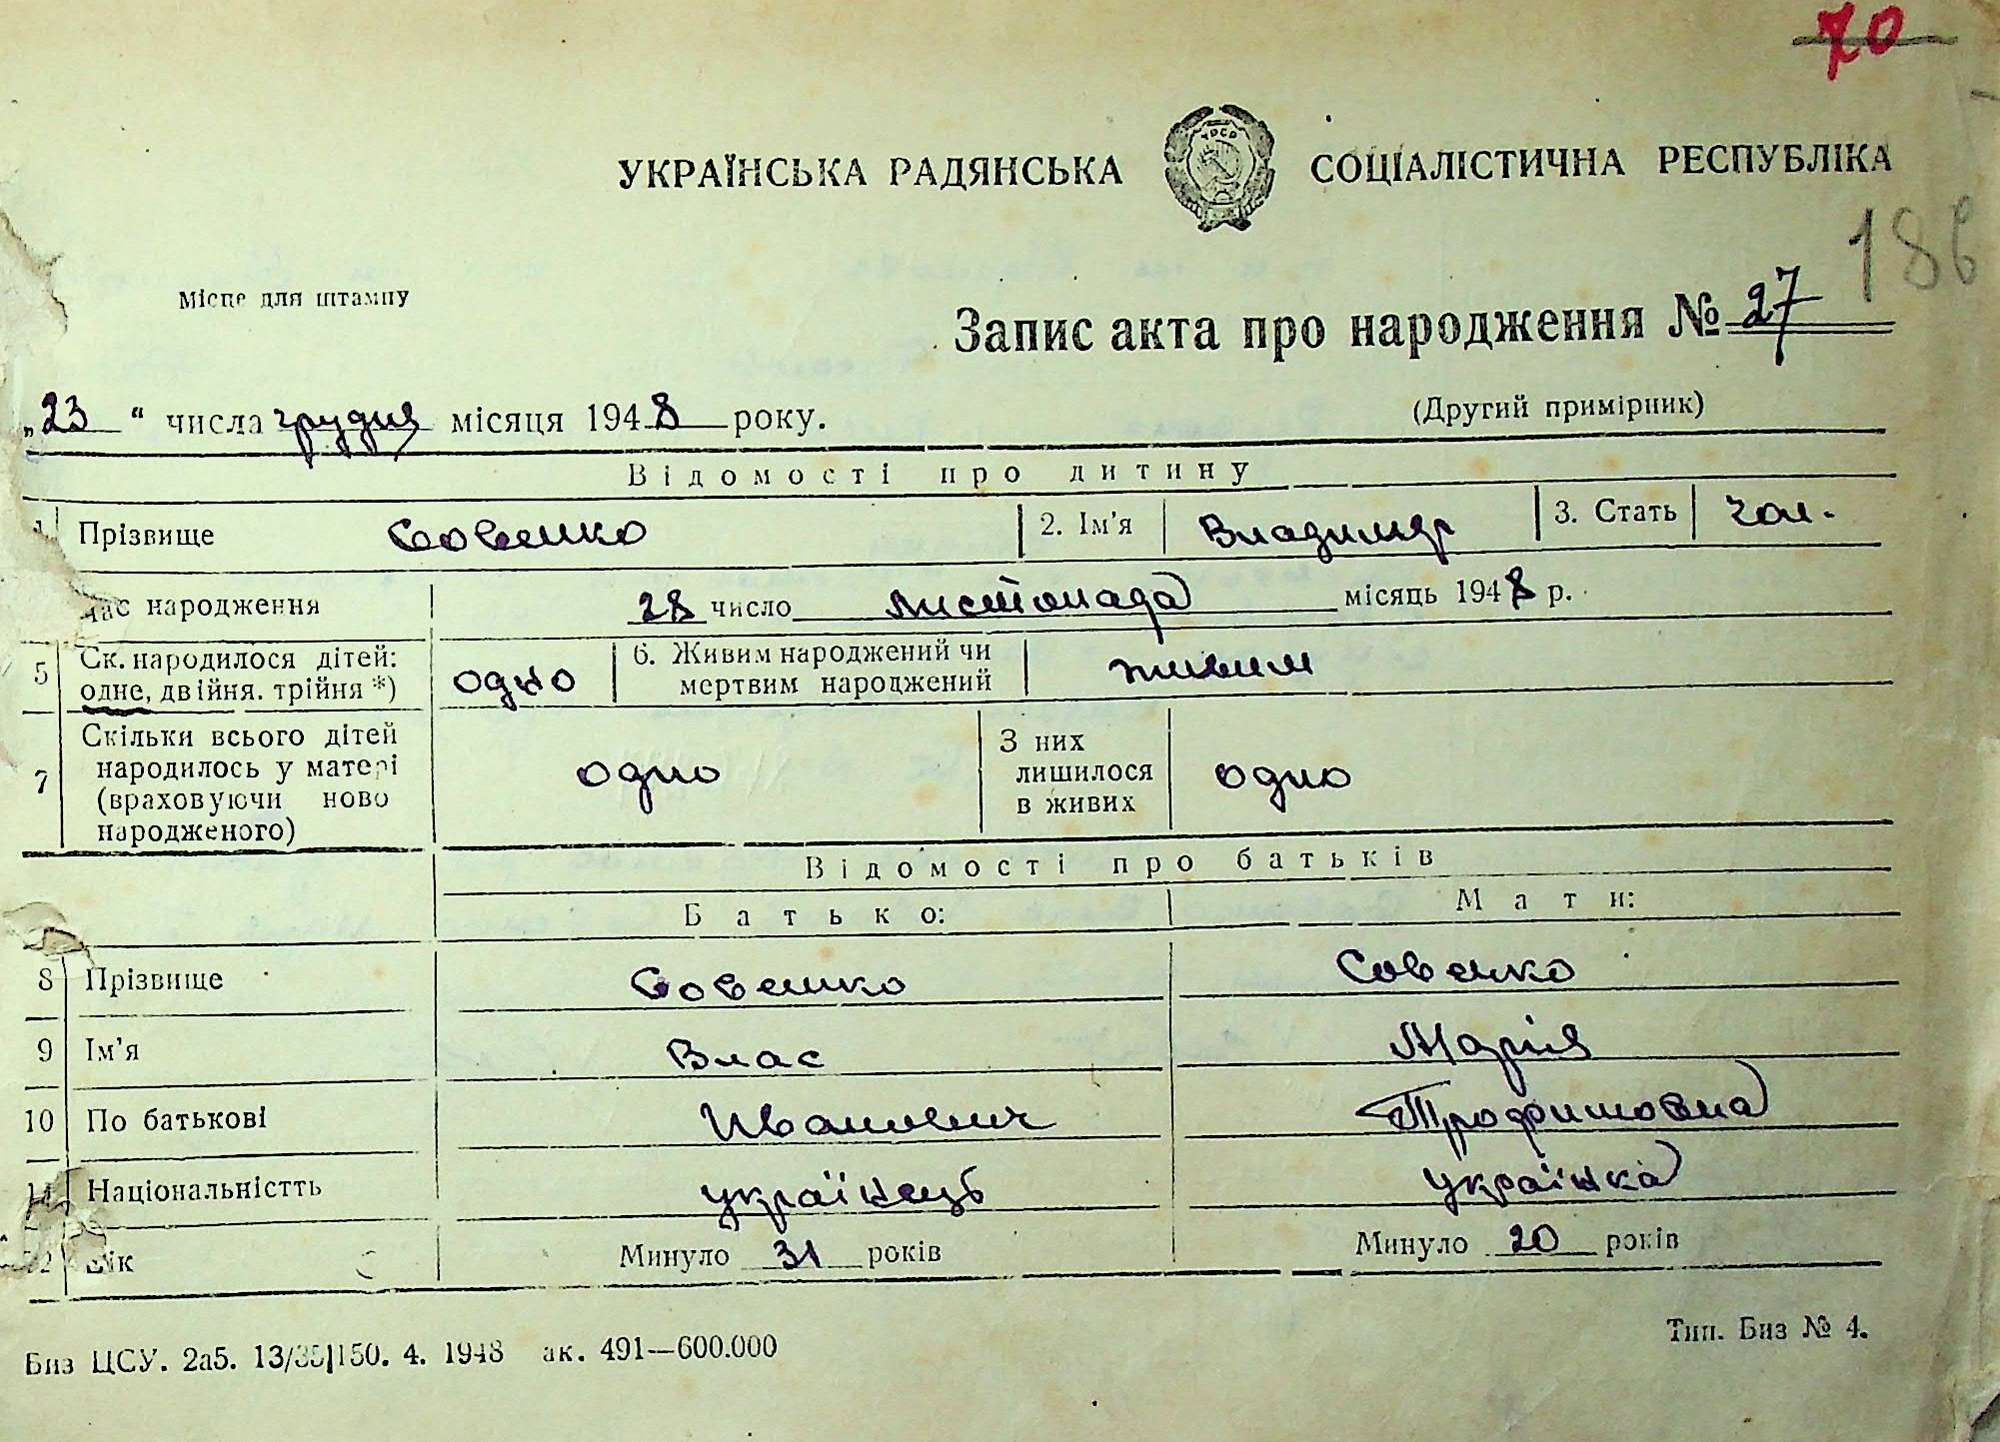 70
УКРАЇНСЬКА РАДЯНСЬКА СОЦІАЛІСТИЧНА РЕСПУБЛІКА
УРСР
186
Місце для штампу
Запис акта про народження № 27
„23“ числа грудня місяця 1948 року.
(Другий примірник)
Відомості про дитину
1 Прізвище Совенко 2. Ім'я Владимир 3. Стать чол.
Час народження 28 число листопада місяць 1948 р.
5 Ск. народилося дітей: одне, двійня. трійня *) одно 6. Живим народжений чи мертвим народжений живим
7 Скільки всього дітей народилось у матері (враховуючи ново народженого) одно З них лишилося в живих одно
Відомості про батьків
Батько: Мати:
8 Прізвище Совенко Совенко
9 Ім'я Влас Марія
10 По батькові Иванович Трофимовна
11 Національністть українець українка
12 Вік Минуло 31 років Минуло 20 років
Биз ЦСУ. 2а5. 13/35|150. 4. 1948 ак. 491—600.000
Тип. Биз № 4.